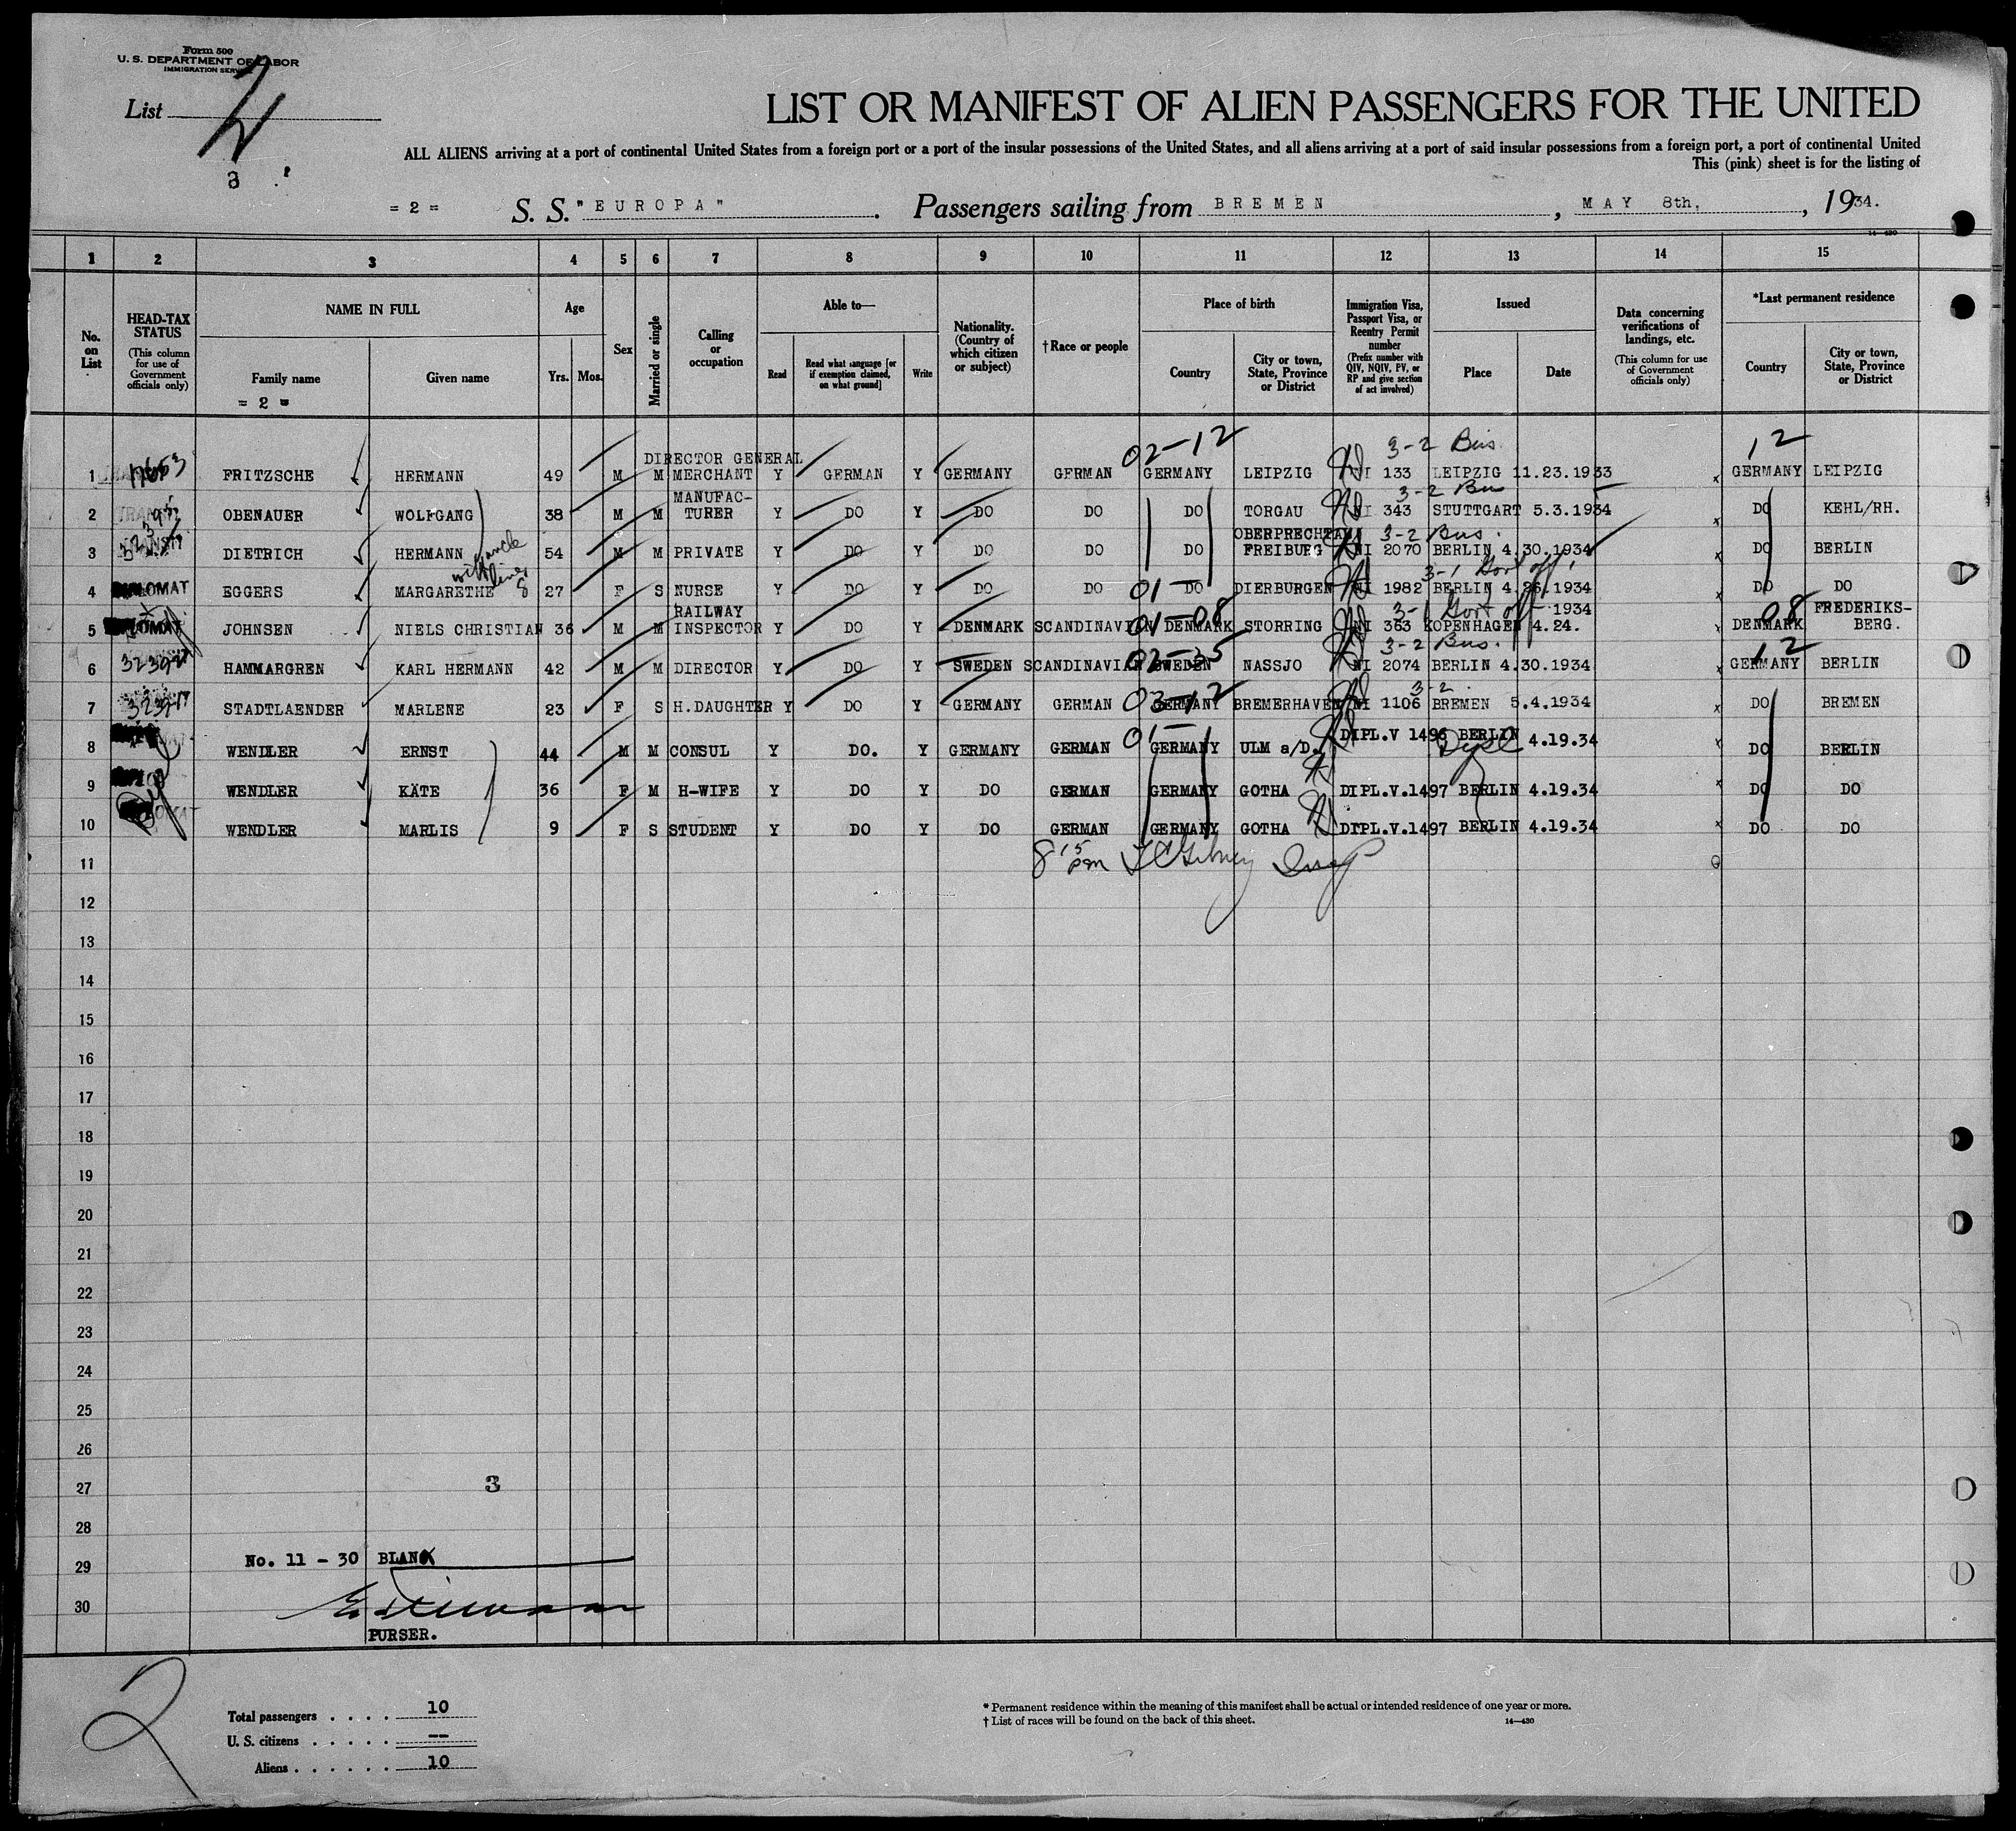 Form 500
U. S. DEPARTMENT OF LABOR
IMMIGRATION SERVICE
List
3
LIST OR MANIFEST OF ALIEN PASSENGERS FOR THE UNITED
ALL ALIENS arriving at a port of continental United States from a foreign port or a port of the insular possessions of the United States, and all aliens arriving at a port of said insular possessions from a foreign port, a port of continental United
This (pink) sheet is for the listing of
= 2 = S. S. "EUROPA". Passengers sailing from BREMEN, MAY 8th, 1934.
14-430
1 2 3 4 5 6 7 8 9 10 11 12 13 14 15
No. on List
HEAD-TAX STATUS (This column for use of Government officials only)
NAME IN FULL
Family name
= 2 =
Given name
Age
Yrs. Mos.
Sex
Married or single
Calling or occupation
Able to—
Read
Read what language [or if exemption claimed, on what ground]
Write
Nationality. (Country of which citizen or subject)
†Race or people
Place of birth
Country
City or town, State, Province or District
Immigration Visa, Passport Visa, or Reentry Permit number (Prefix number with QIV, NQIV, PV, or RP and give section of act involved)
Issued
Place
Date
Data concerning verifications of landings, etc. (This column for use of Government officials only)
*Last permanent residence
Country
City or town, State, Province or District
02-12 3-2 Bus 12
1 FRITZSCHE HERMANN 49 M M DIRECTOR GENERAL MERCHANT Y GERMAN Y GERMANY GERMAN GERMANY LEIPZIG NI 133 LEIPZIG 11.23.1933 x GERMANY LEIPZIG
3-2 Bus
2 OBENAUER WOLFGANG 38 M M MANUFAC-TURER Y DO Y DO DO DO TORGAU NI 343 STUTTGART 5.3.1934 x DO KEHL/RH.
3-2 Bus.
3 DIETRICH HERMANN 54 M M PRIVATE Y DO Y DO DO DO OBERPRECHTAL FREIBURG NI 2070 BERLIN 4.30.1934 x DO BERLIN
3-1 Govt off.
4 DIPLOMAT EGGERS MARGARETHE 27 F S NURSE Y DO Y DO DO 01 DO DIERBURGEN NI 1982 BERLIN 4.26.1934 x DO DO
3-1 Govt off
5 JOHNSEN NIELS CHRISTIAN 36 M M RAILWAY INSPECTOR Y DO Y DENMARK SCANDINAVIAN 01-08 DENMARK STORRING NI 353 KOPENHAGEN 4.24. 1934 x 08 DENMARK FREDERIKS-BERG.
3-2 Bus.
6 HAMMARGREN KARL HERMANN 42 M M DIRECTOR Y DO Y SWEDEN SCANDINAVIAN 02-35 SWEDEN NASSJO NI 2074 BERLIN 4.30.1934 12 GERMANY BERLIN
3-2
7 STADTLAENDER MARLENE 23 F S H.DAUGHTER Y DO Y GERMANY GERMAN 03-12 GERMANY BREMERHAVEN NI 1106 BREMEN 5.4.1934 x DO BREMEN
8 WENDLER ERNST 44 M M CONSUL Y DO. Y GERMANY GERMAN 01- GERMANY ULM a/D. DIPL.V 1496 BERLIN 4.19.34 x DO BERLIN
Dipl
9 WENDLER KÄTE 36 F M H-WIFE Y DO Y DO GERMAN GERMANY GOTHA DIPL.V.1497 BERLIN 4.19.34 x DO DO
10 WENDLER MARLIS 9 F S STUDENT Y DO Y DO GERMAN GERMANY GOTHA DIPL.V.1497 BERLIN 4.19.34 x DO DO
11 8 15 pm Insp
12
13
14
15
16
17
18
19
20
21
22
23
24
25
26
27 3
28
No. 11 - 30 BLANK
29
30
PURSER.
2
Total passengers . . . . 10
U. S. citizens . . . . . --
Aliens . . . . . . 10
* Permanent residence within the meaning of this manifest shall be actual or intended residence of one year or more.
† List of races will be found on the back of this sheet. 14—430